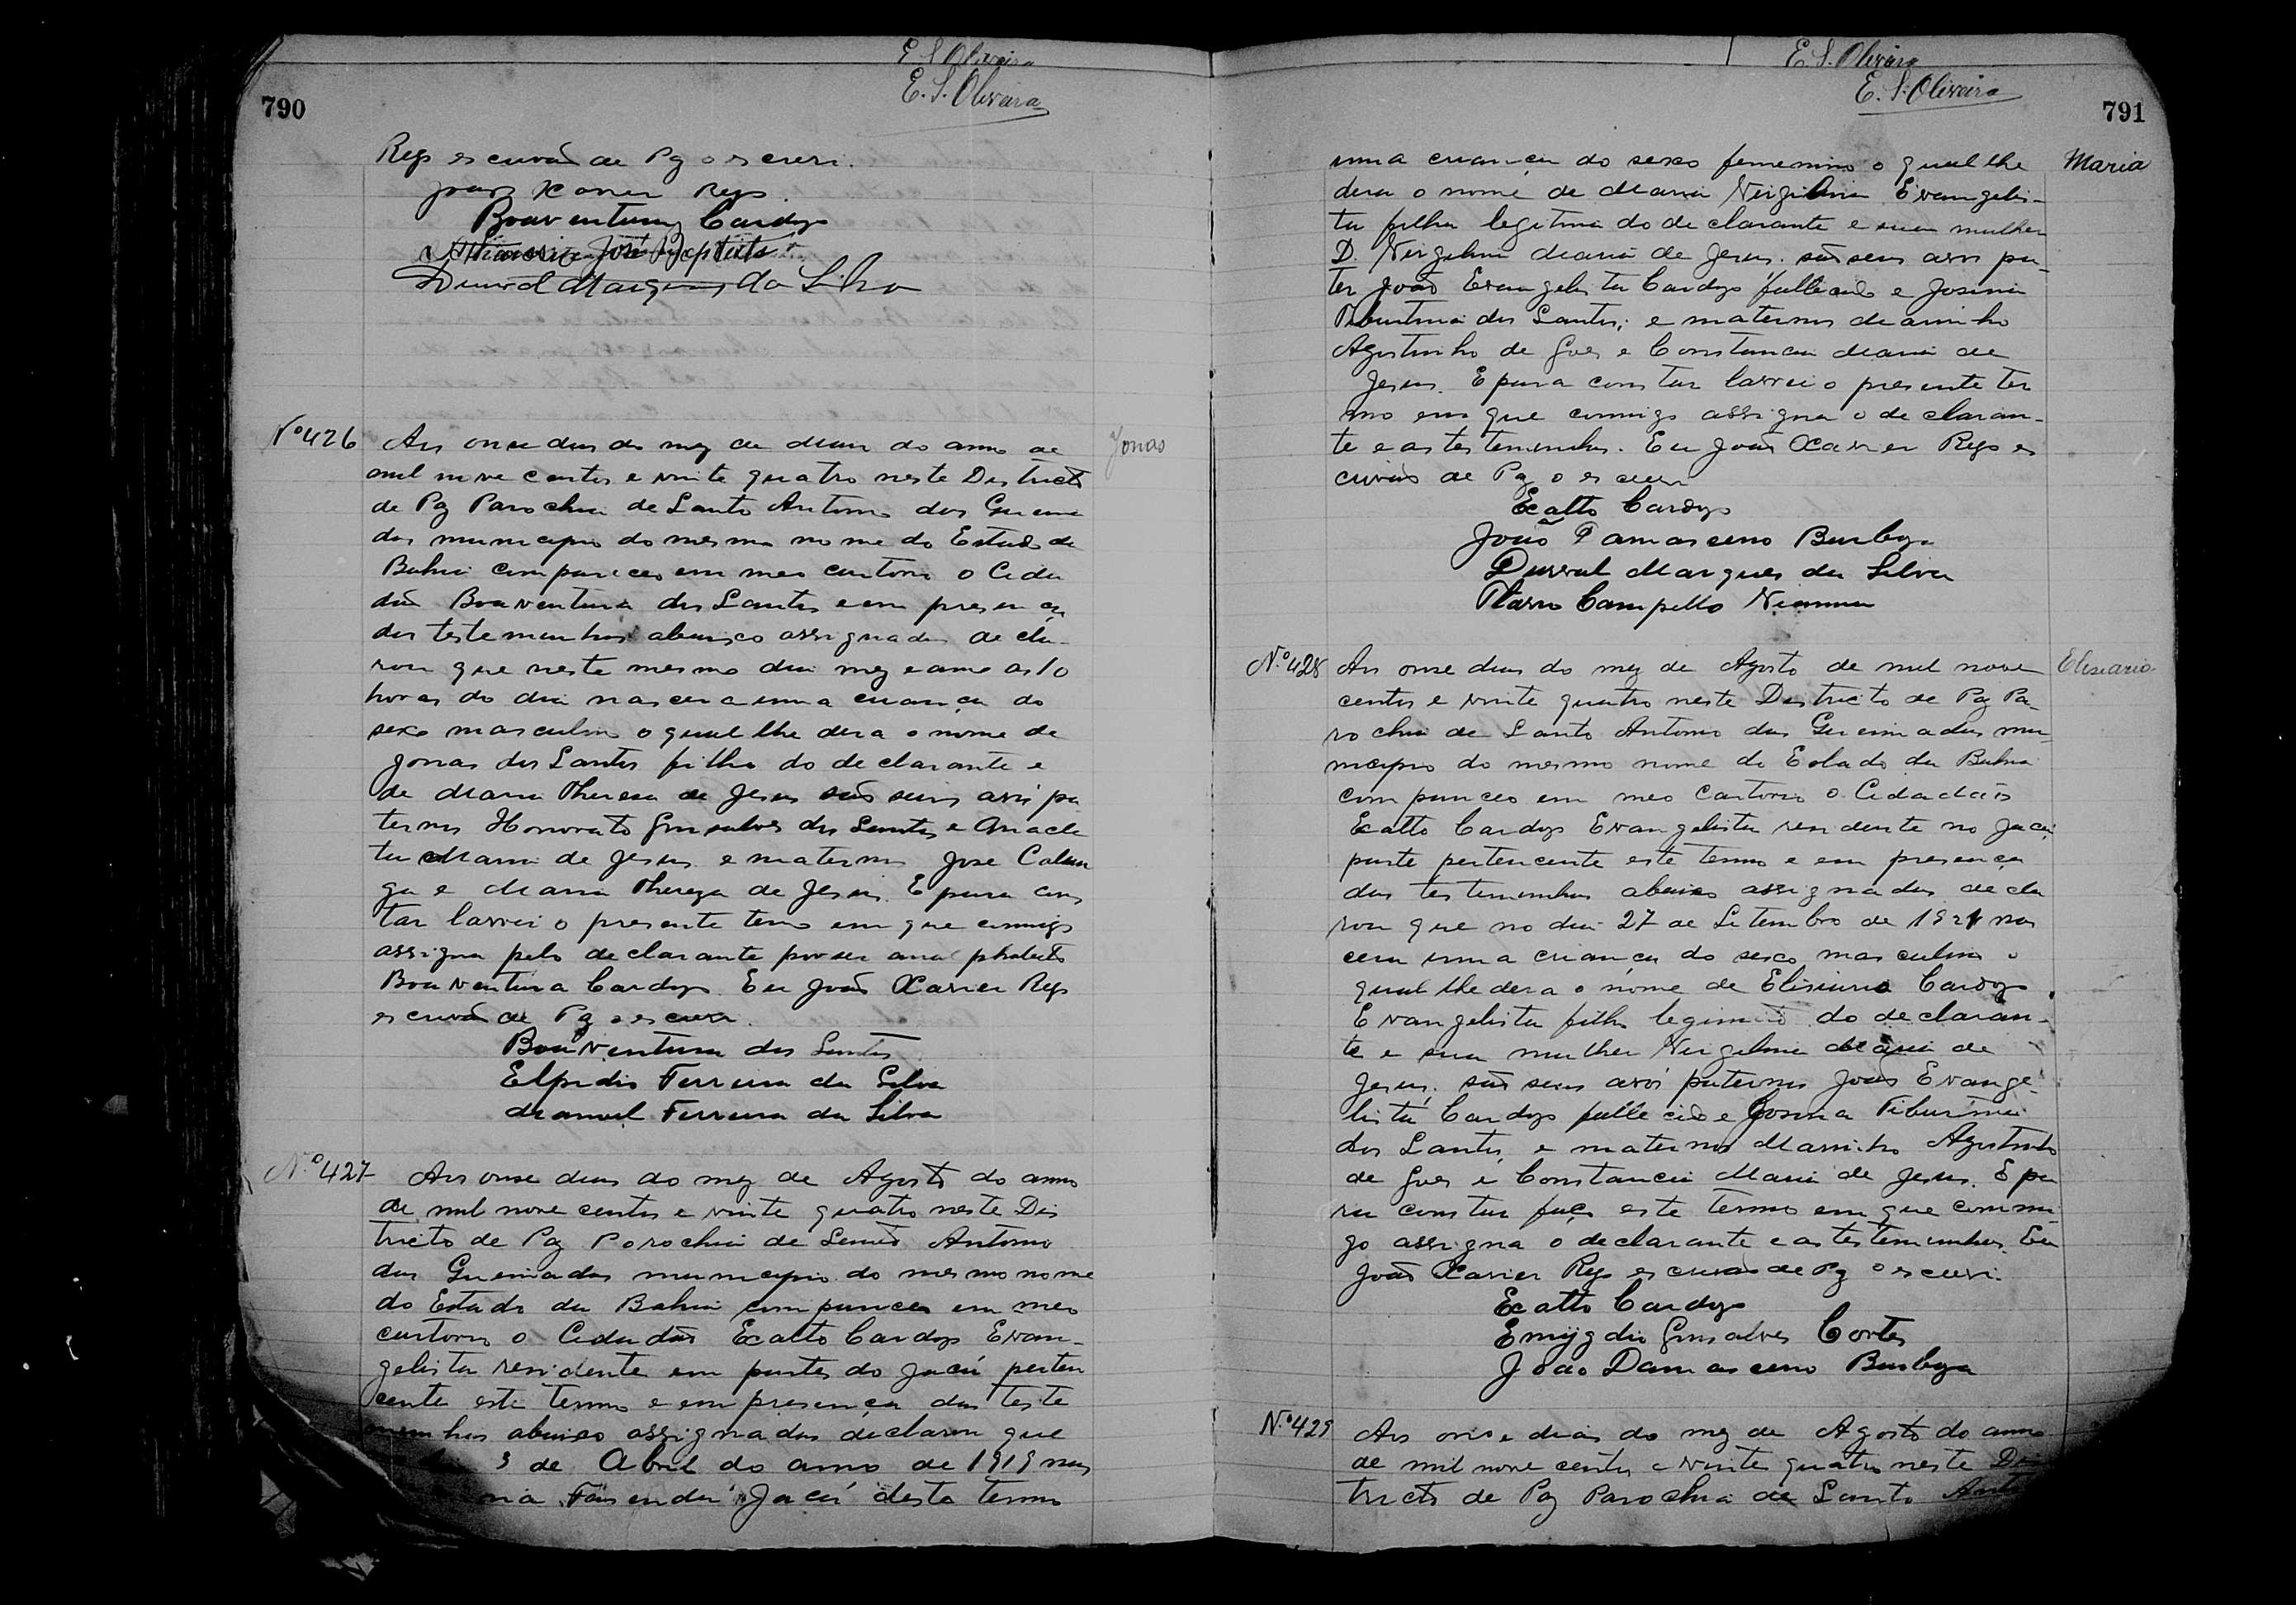 E S Oliveira
E. S. Oliveira
790
Rego escrivão de Paz o escrevi.
João Xavier Rego
Boaventura Cardozo
José Baptista
Durval Marques da Silva
Nº 426
Jonas
Aos onse dias do mez de Maio do anno de
mil nove centos e vinte quatro neste Districto
de Paz Parochia de Santo Antonio das Queima
das municipio do mesmo nome do Estado da
Bahia compareceo em meo cartorio o Cida
dão Boaventura dos Santos e em presença
das testemunhas abaixo assignadas decla-
rou que neste mesmo dia mez e anno as 10
horas do dia nascera uma criança do
sexo masculino o qual lhe dera o nome de
Jonas dos Santos filho do declarante e
de Maria Theresa de Jesus são seus avós pa
ternos Honorato Gonsalves dos Santos e Anacle
ta Maria de Jesus e maternos José
e Maria Thereza de Jesus. E para cons
tar lavrei o presente termo em que commigo
assigna pelo declarante por ser analphabeto
Boaventura Cardozo. Eu João Xavier Rego
escrivão de Paz o escrevi.
Boaventura dos Santos
Elpidio Ferreira da Silva
Manoel Ferreira da Silva
Nº 427
Aos onse dias do mez de Agosto do anno
de mil nove centos e vinte quatro neste Dis
tricto de Paz Parochia de Santo Antonio
das Queimadas municipio do mesmo nome
do Estado da Bahia compareceo em meo
cartorio o Cidadão Exalto Cardozo Evan-
gelista residente em partes do Jacú perten
cente este termo e em presença das teste
munhas abaixo assignadas declarou que
3 de Abril do anno de 1919 nas
na Fasenda Jacú deste termo
E. S. Oliveira
E. S. Oliveira
791
Maria
uma criança do sexo femenino o qual lhe
dera o nome de Maria Virgilina Evangelis-
ta filha legitima do declarante e sua mulher
D. Virgilina Maria de Jesus. são seus avos pa-
ter João Evangelista Cardozo fallecido e Josina
Tiburtina dos Santos; e maternos Marinho
Agostinho de Goes e Constancia Maria de
Jesus. E para constar lavrei o presente ter
mo em que commigo assigna o declaran-
te e as testemunhas. Eu João Xavier Rego es
crivão de Paz o escrevi
Exalto Cardozo
João Damasceno Barboza
Durval Marques da Silva
Flavio Campello Vianna
Nº 428
Elisiario
Aos onse dias do mez de Agosto de mil nove
centos e vinte quatro neste Districto de Paz Pa-
rochia de Santo Antonio das Queimadas mu-
nicipio do mesmo nome do Estado da Bahia
compareceo em meo Cartorio o Cidadão
Exalto Cardozo Evangelista residente no Jacú
parte pertencente este termo e em presença
das testemunhas abaixo assignadas decla
rou que no dia 27 de Setembro de 1921 nas
cera uma criança do sexo masculino o
qual lhe dera o nome de Elisiario Cardozo
Evangelista filho legimito do declaran-
te e sua mulher Virgilina Maria de
Jesus, são seus avós paternos João Evange-
lista Cardozo fallecido e Josina Tiburtina
dos Santos, e maternos Marinho Agostinho
de Goes e Constancia Maria de Jesus. E pa
ra constar faço este termo em que commi
go assigna o declarante e as testemunhas. Eu
João Xavier Rego escrivão de Paz o escrevi.
Exalto Cardozo
Emygdio Gonsalves Cortes
João Damasceno Barboza
Nº 429
Aos onse dias do mez de Agosto do anno
de mil nove centos e vinte quatro neste Dis
tricto de Paz Parochia de Santo Anto